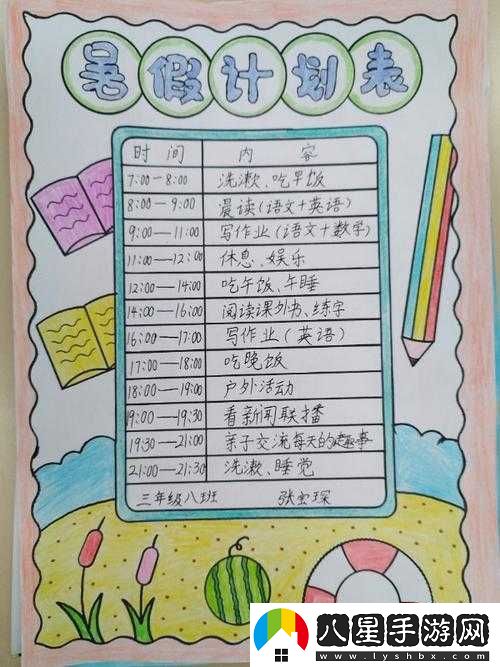 暑假计划表
时间 内容
7:00—8:00 洗漱、吃早饭
8:00—9:00 晨读(语文+英语)
9:00—11:00 写作业(语文+数学)
11:00—12:00 休息、娱乐
12:00—14:00 吃午饭、午睡
14:00—16:00 阅读课外书、练字
16:00—17:00 写作业(英语)
17:00—18:00 吃晚饭
18:00—19:00 户外活动
19:00—19:30 看新闻联播
19:30—21:00 亲子交流每天的趣事
21:00—21:30 洗漱、睡觉
三年级八班 张宝琛
八星手游网
www.lyshbx.com